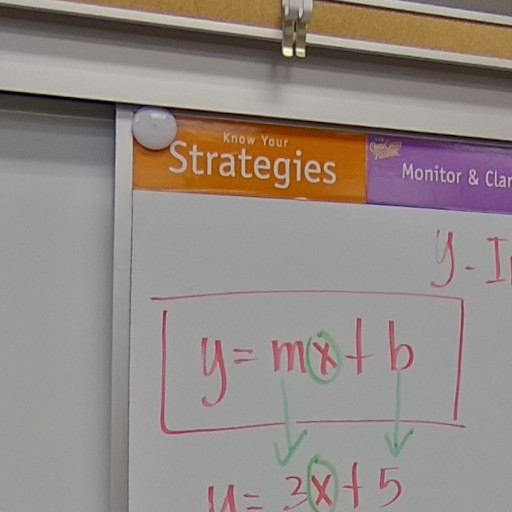 Know Your
Strategies
Monitor & Clar
y - I
y = mx + b
y = 3x + 5